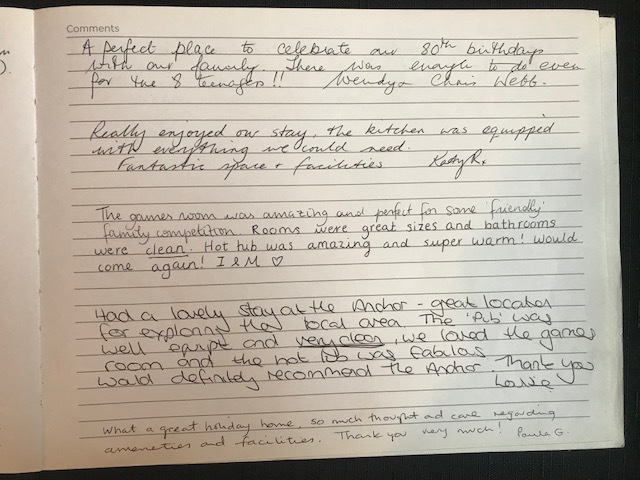 Comments
A perfect place to celebrate our 80th birthdays
with our family. There was enough to do even
for the 8 teenagers!! Wendy & Chris Webb.
Really enjoyed our stay, the kitchen was equipped
with everything we could need.
Fantastic space + facilities Katy R x
The games room was amazing and perfect for some 'friendly'
family competition. Rooms were great sizes and bathrooms
were clean. Hot tub was amazing and super warm! Would
come again! I & M ♡
Had a lovely stay at the Anchor - great location
for exploring the local area. The 'Pub' was
well equipt and very clean, we loved the games
room and the hot tub was fabulous
would definitely recommend the Anchor. Thank you
What a great holiday home, so much thought ad care regarding
ameneties and facilities. Thank you very much! Paula G.